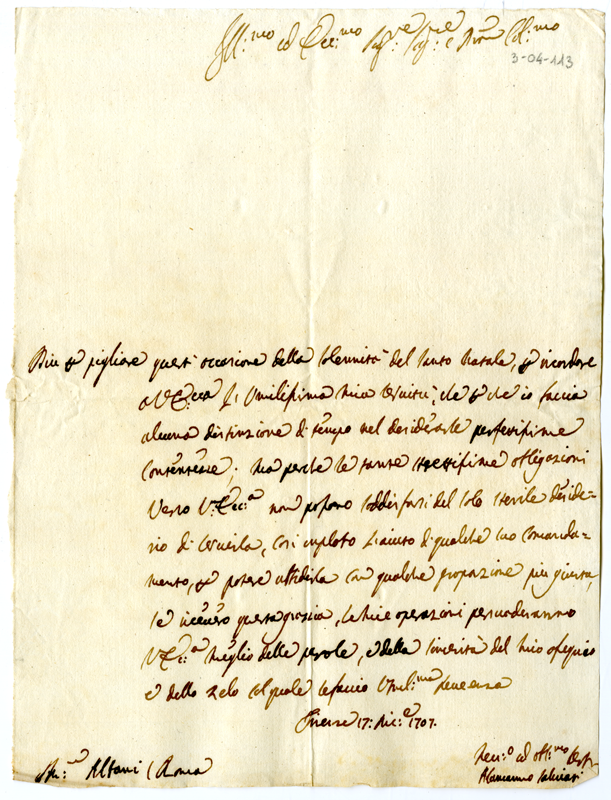 Ill:mo ed Ecc:mo Sig:re Sig:re e Pron Col:mo
3-04-113
Più p pigliare quest'occasione della solennità del Santo Natale, p ricordare
a V.Ecc:za l'Umilissima mia servitù, che p che io faccia
alcuna distinzione di tempo nel desiderarle perfettissime
contentezze; ma perche le tante strettissime obbligazioni
verso V:Ecc:a non possono soddisfarsi del solo sterile deside-
rio di servirla, così imploro l'aiuto di qualche suo comanda-
mento, p potere ubbidirla con qualche proporzione più giusta,
se ricevero questa grazia, le mie operazioni persuaderanno
V.Ecc:a meglio delle parole, e della sincerità del mio ossequio
e dello zelo col quale le faccio Umil:ma reverenza
Firenze 17: Dic:e 1707.
Albani (Roma
Dev:o ed obb:mo
Alamanno Salviati